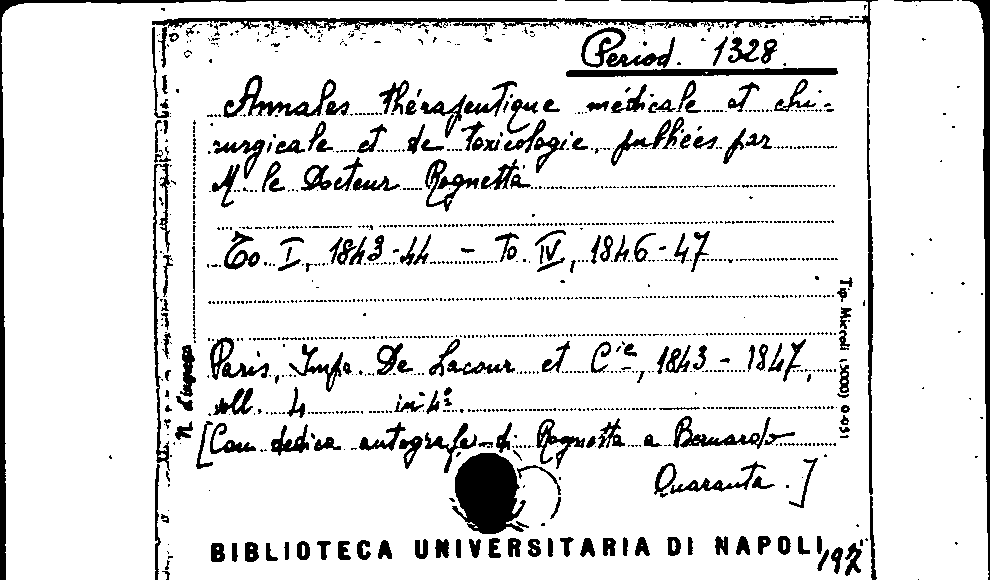 Period. 1328.
Annales thérapeutique médicale et chi-
rurgicale et de toxicologie, publiées par
M. le Docteur Rognetta
To. I, 1843-44 - To. IV, 1846-47.
Paris, Impr. De Lacour et Cie, 1843-1847,
voll. 4 in-4º.
[Con dedica autografa di Rognetta a Bernardo
Quaranta.]
N. d'ingresso
Tip. Miccoli (5000) 0-051
BIBLIOTECA UNIVERSITARIA DI NAPOLI
197